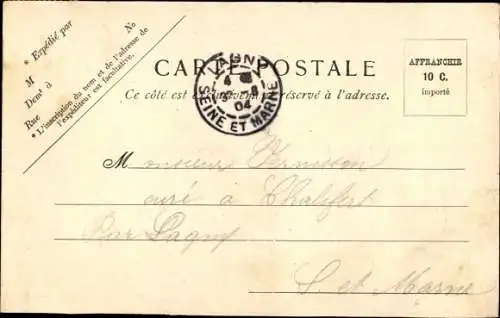 * Expédié par
M
Demt à No
Rue
* L'inscription du nom et de l'adresse de
l'expéditeur est facultative.
CARTE POSTALE
Ce côté est exclusivement réservé à l'adresse.
LAGNY
4
04
SEINE ET MARNE
AFFRANCHIR
10 C.
importé
Monsieur
curé à Chalifert
Par Lagny
S. et Marne